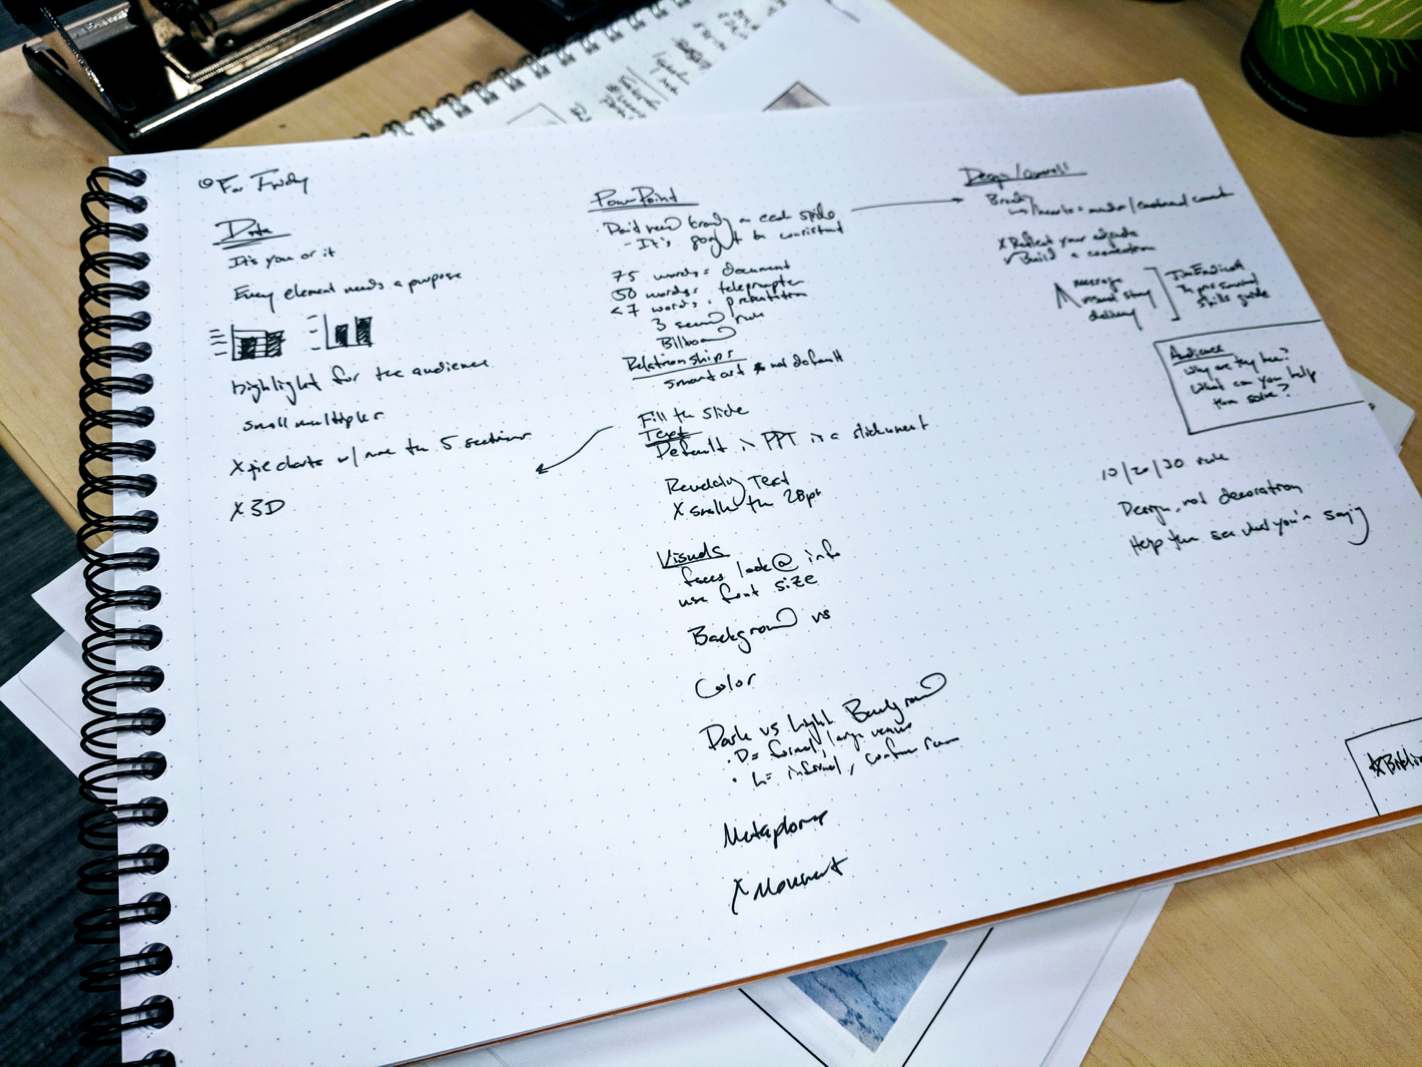 For Friday
Data
It's you or it
Every element needs a purpose
highlight for the audience
small multiples
X pie charts w/ more than 5 sections
X 3D
PowerPoint
Don't need brand on each slide
- It's got to be consistent
75 words = document
50 words = teleprompter
<7 words = presentation
3 second rule
Billboard
Relationships
smart art not default
Fill the slide
Text
Default in PPT is a slideument
Readably Text
X smaller than 28pt
Visuals
faces look @ info
use font size
Background vs
Color
Dark vs Light Background
• D= formal, large venue
• L= informal, conference room
Metaphors
X Movement
Design/overall
Brand
X Reflect your
Build a connection
message
visual story
delivery
Jim Endicott
The presentation
skills guide
Audience
Why are they here?
What can you help
them solve?
10/20/30 rule
Design, not decoration
Help them see what you're saying